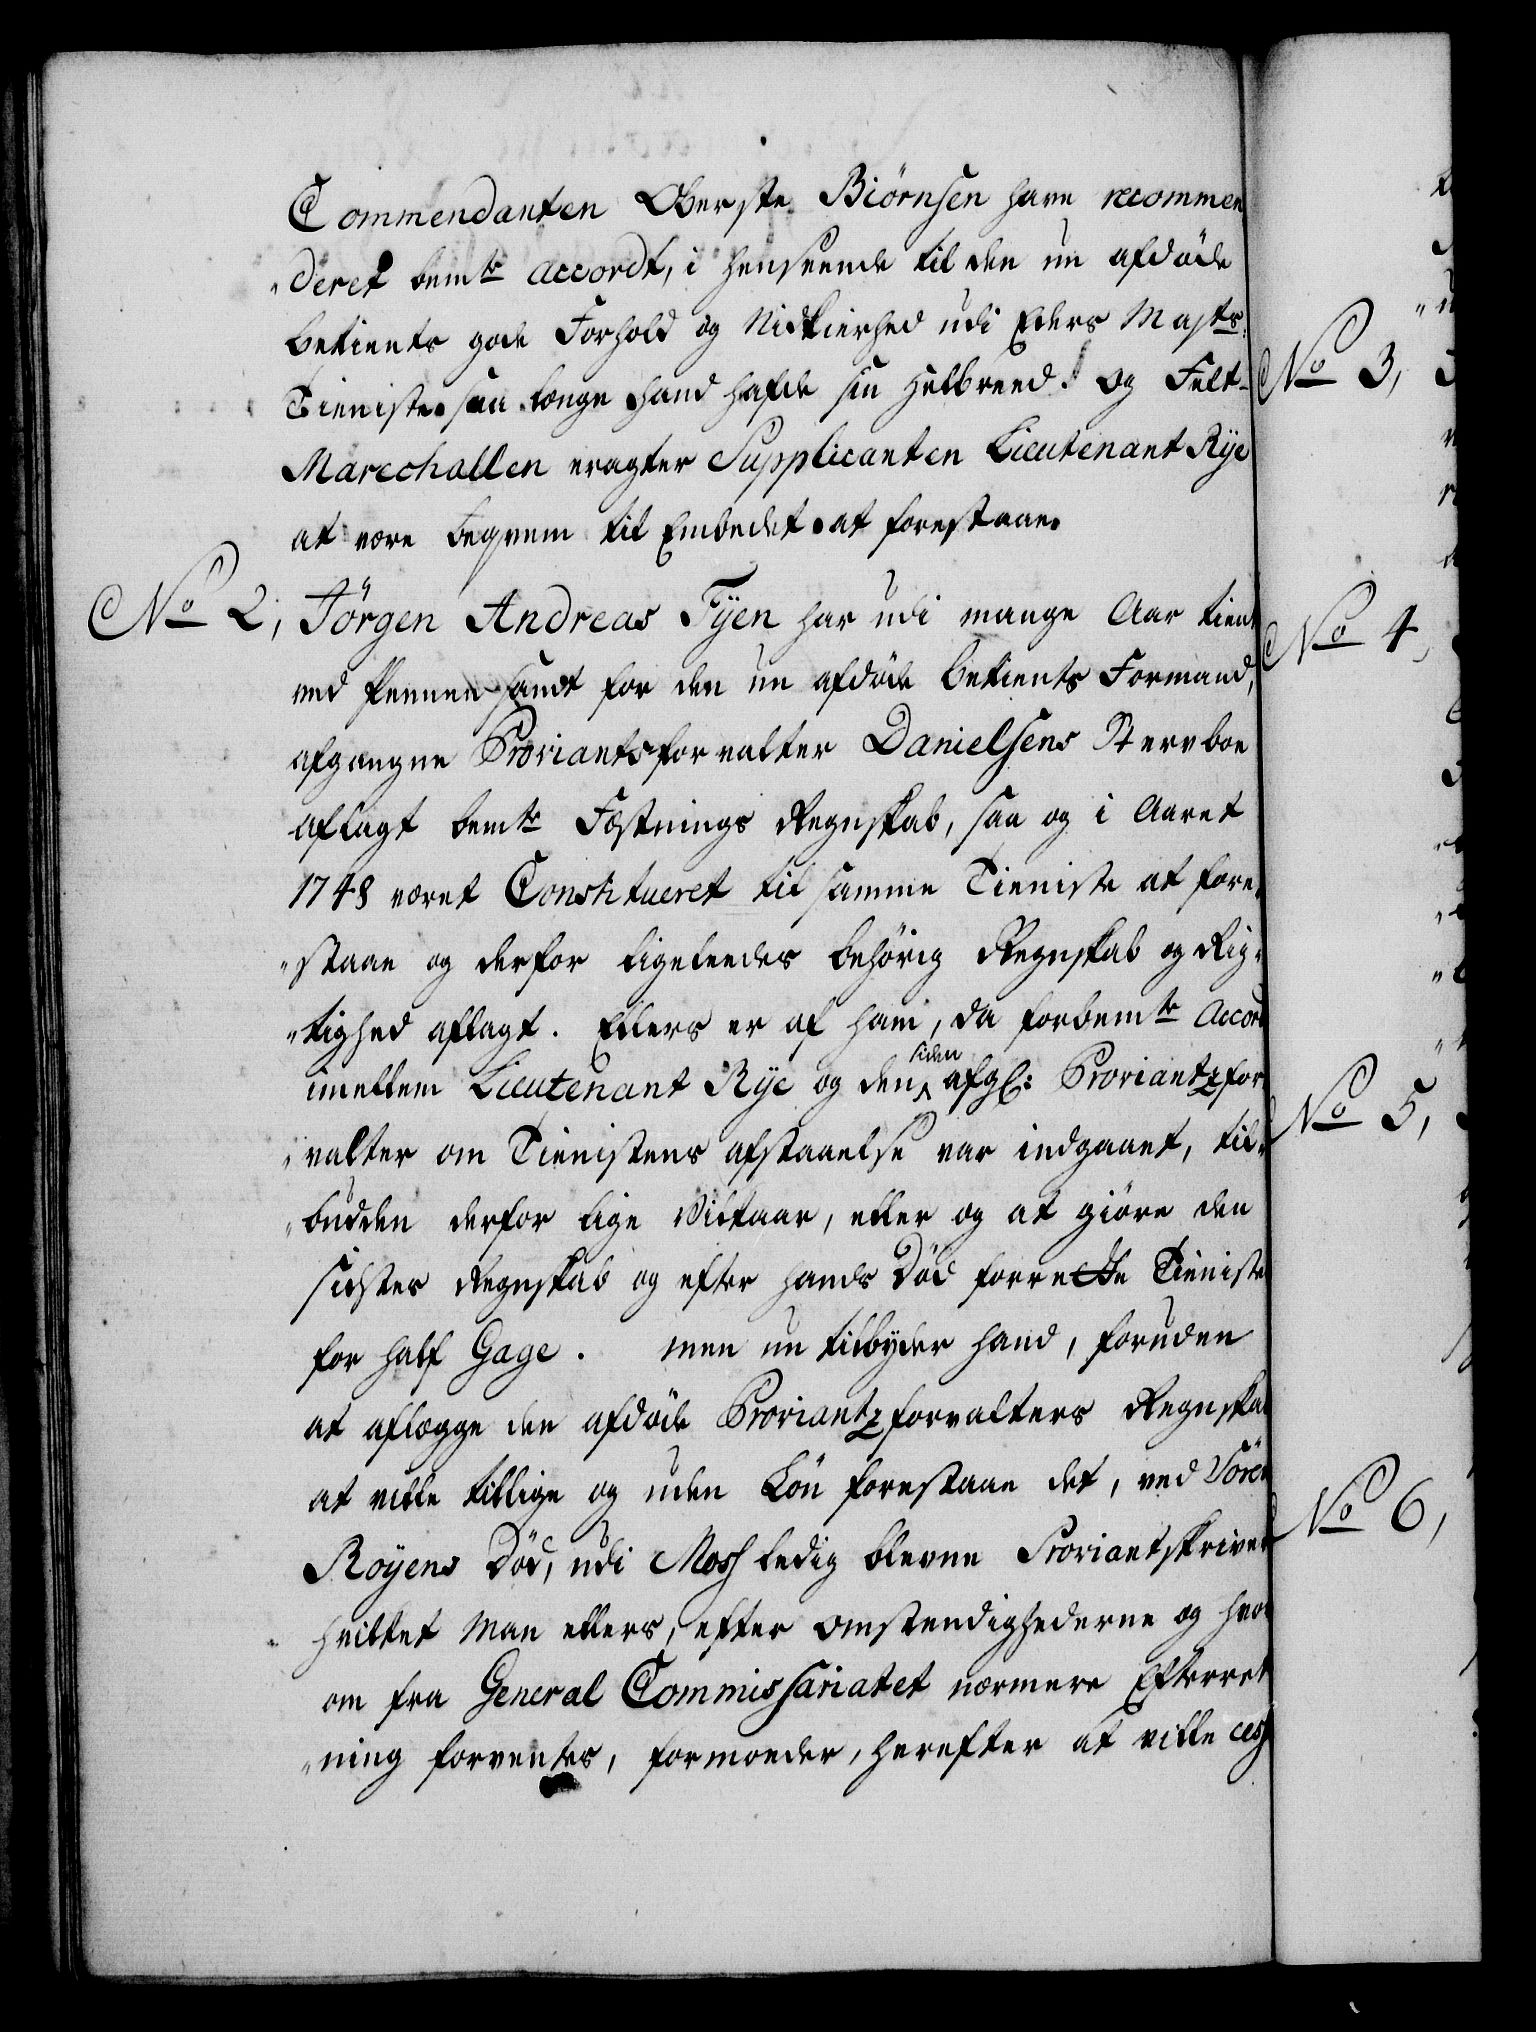 Commendanten Oberste Biörnsen have recommen
deret bemte accordt, i henseende til den nu afdöde
betients gode Forhold og Nidkierhed udi Eders Majts
Tieniste saa længe hand hafde sin Helbreed. Og Felt-
Marechallen eragter Supplicanten Lieutenant Rÿe
at være beqvem til Embedet at forestaae.
No 2, Jörgen Andreas Fÿen har udi mange Aar tient
ved Pennen samt for den nu afdöde betients Formand,
afgangne Proviantsforvalter Danielsens Stervboe
aflagt bemte Fæstnings Regnskab, saa og i Aaret
1748 været Constitueret til samme Tieniste at fore
staae og derfor ligeleedes behörig Regnskab og Rig-
tighed aflagt. Ellers er af ham, da forbemte Accord
imellem Lieutenant Rÿe og den siden afgl: Proviantzfor
valter om Tienistens afstaaelse var indgaaet, til-
budden derfor lige Vilkaar, eller og at giöre den
sidstes Regnskab og efter hands Död forrette Tieniste
for half Gage. men nu tilbyder hand, foruden
at aflægge den afdöde Proviantzforvalters Regnskab
at ville tillige og uden Lön forestaae det, ved Sören
Royens Död, udi Moss ledig blevne Proviantskriver
hvilket Man ellers, efter omstendighederne og hvor
om fra General Commissariatet nærmere Efterret
ning forventes, formoeder, herefter at ville cess
No 3,
No 4,
No 5,
No 6,